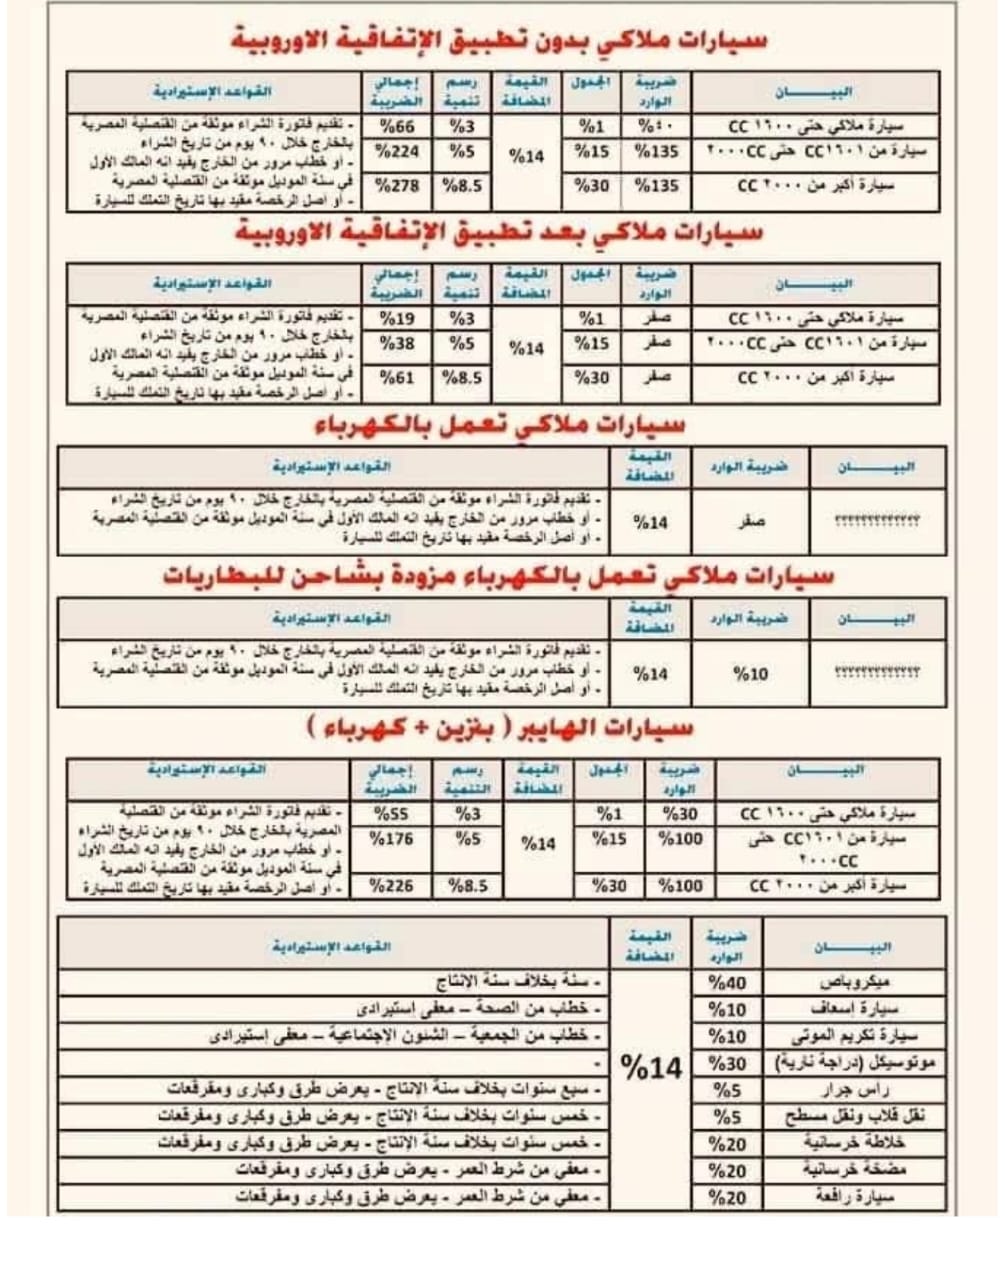 سيارات ملاكي بدون تطبيق الإتفاقية الاوروبية
البيـــــــان ضريبة الوارد الجدول القيمة المضافة رسم تنمية إجمالي الضريبة القواعد الإستيرادية
سيارة ملاكي حتى ١٦٠٠ CC %٤٠ %1 %14 %3 %66
سيارة من CC١٦٠١ حتى ٢٠٠٠CC %135 %15 %5 %224
سيارة أكبر من ٢٠٠٠ CC %135 %30 %8.5 %278
- تقديم فاتورة الشراء موثقة من القنصلية المصرية
بالخارج خلال ٩٠ يوم من تاريخ الشراء
- أو خطاب مرور من الخارج يفيد انه المالك الأول
في سنة الموديل موثقة من القنصلية المصرية
- أو اصل الرخصة مقيد بها تاريخ التملك للسيارة
سيارات ملاكي بعد تطبيق الإتفاقية الاوروبية
البيـــــــان ضريبة الوارد الجدول القيمة المضافة رسم تنمية إجمالي الضريبة القواعد الإستيرادية
سيارة ملاكي حتى ١٦٠٠ CC صفر %1 %14 %3 %19
سيارة من CC١٦٠١ حتى ٢٠٠٠CC صفر %15 %5 %38
سيارة اكبر من ٢٠٠٠ CC صفر %30 %8.5 %61
- تقديم فاتورة الشراء موثقة من القنصلية المصرية
بالخارج خلال ٩٠ يوم من تاريخ الشراء
- أو خطاب مرور من الخارج يفيد انه المالك الأول
في سنة الموديل موثقة من القنصلية المصرية
- أو اصل الرخصة مقيد بها تاريخ التملك للسيارة
سيارات ملاكي تعمل بالكهرباء
البيـــــــان ضريبة الوارد القيمة المضافة القواعد الإستيرادية
؟؟؟؟؟؟؟؟؟؟؟؟؟ صفر %14
- تقديم فاتورة الشراء موثقة من القنصلية المصرية بالخارج خلال ٩٠ يوم من تاريخ الشراء
- أو خطاب مرور من الخارج يفيد انه المالك الأول في سنة الموديل موثقة من القنصلية المصرية
- أو اصل الرخصة مقيد بها تاريخ التملك للسيارة
سيارات ملاكي تعمل بالكهرباء مزودة بشاحن للبطاريات
البيـــــــان ضريبة الوارد القيمة المضافة القواعد الإستيرادية
؟؟؟؟؟؟؟؟؟؟؟؟؟ %10 %14
- تقديم فاتورة الشراء موثقة من القنصلية المصرية بالخارج خلال ٩٠ يوم من تاريخ الشراء
- أو خطاب مرور من الخارج يفيد انه المالك الأول في سنة الموديل موثقة من القنصلية المصرية
- أو اصل الرخصة مقيد بها تاريخ التملك للسيارة
سيارات الهايبر ( بنزين + كهرباء )
البيـــــــان ضريبة الوارد الجدول القيمة المضافة رسم التنمية إجمالي الضريبة القواعد الإستيرادية
سيارة ملاكي حتى ١٦٠٠ CC %30 %1 %14 %3 %55
سيارة من CC١٦٠١ حتى ٢٠٠٠CC %100 %15 %5 %176
سيارة أكبر من ٢٠٠٠ CC %100 %30 %8.5 %226
- تقديم فاتورة الشراء موثقة من القنصلية
المصرية بالخارج خلال ٩٠ يوم من تاريخ الشراء
- أو خطاب مرور من الخارج يفيد انه المالك الأول
في سنة الموديل موثقة من القنصلية المصرية
- أو اصل الرخصة مقيد بها تاريخ التملك للسيارة
البيـــــــان ضريبة الوارد القيمة المضافة القواعد الإستيرادية
ميكروباص %40 %14 - سنة بخلاف سنة الإنتاج
سيارة إسعاف %10 - خطاب من الصحة – معفي إستيرادى
سيارة تكريم الموتى %10 - خطاب من الجمعية – الشئون الإجتماعية – معفى إستيرادى
موتوسيكل (دراجة نارية) %30 -
رأس جرار %5 - سبع سنوات بخلاف سنة الانتاج - يعرض طرق وكبارى ومفرقعات
نقل قلاب ونقل مسطح %5 - خمس سنوات بخلاف سنة الإنتاج - يعرض طرق وكبارى ومفرقعات
خلاطة خرسانية %20 - خمس سنوات بخلاف سنة الإنتاج - يعرض طرق وكبارى ومفرقعات
مضخة خرسانية %20 - معفي من شرط العمر - يعرض طرق وكبارى ومفرقعات
سيارة رافعة %20 - معفي من شرط العمر - يعرض طرق وكبارى ومفرقعات